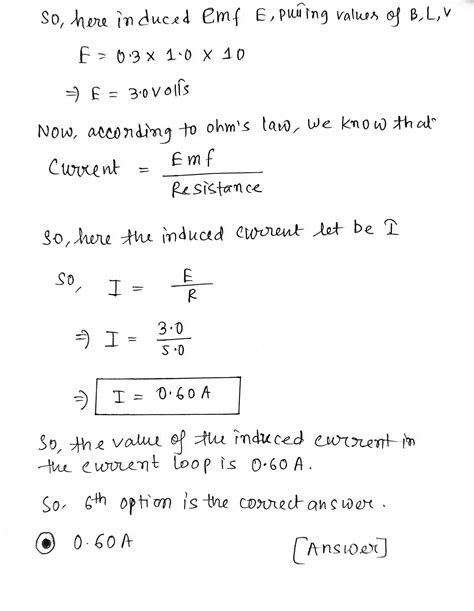 So, here induced emf E, putting values of B, L, V
E = 0.3 x 1.0 x 10
⇒ E = 3.0 volts
Now, according to ohm's law, we know that
Current = Emf / Resistance
So, here the induced current let be I
So, I = E / R
⇒ I = 3.0 / 5.0
⇒ I = 0.60 A
So, the value of the induced current in
the current loop is 0.60 A.
So, 6th option is the correct answer.
0.60 A [Answer]